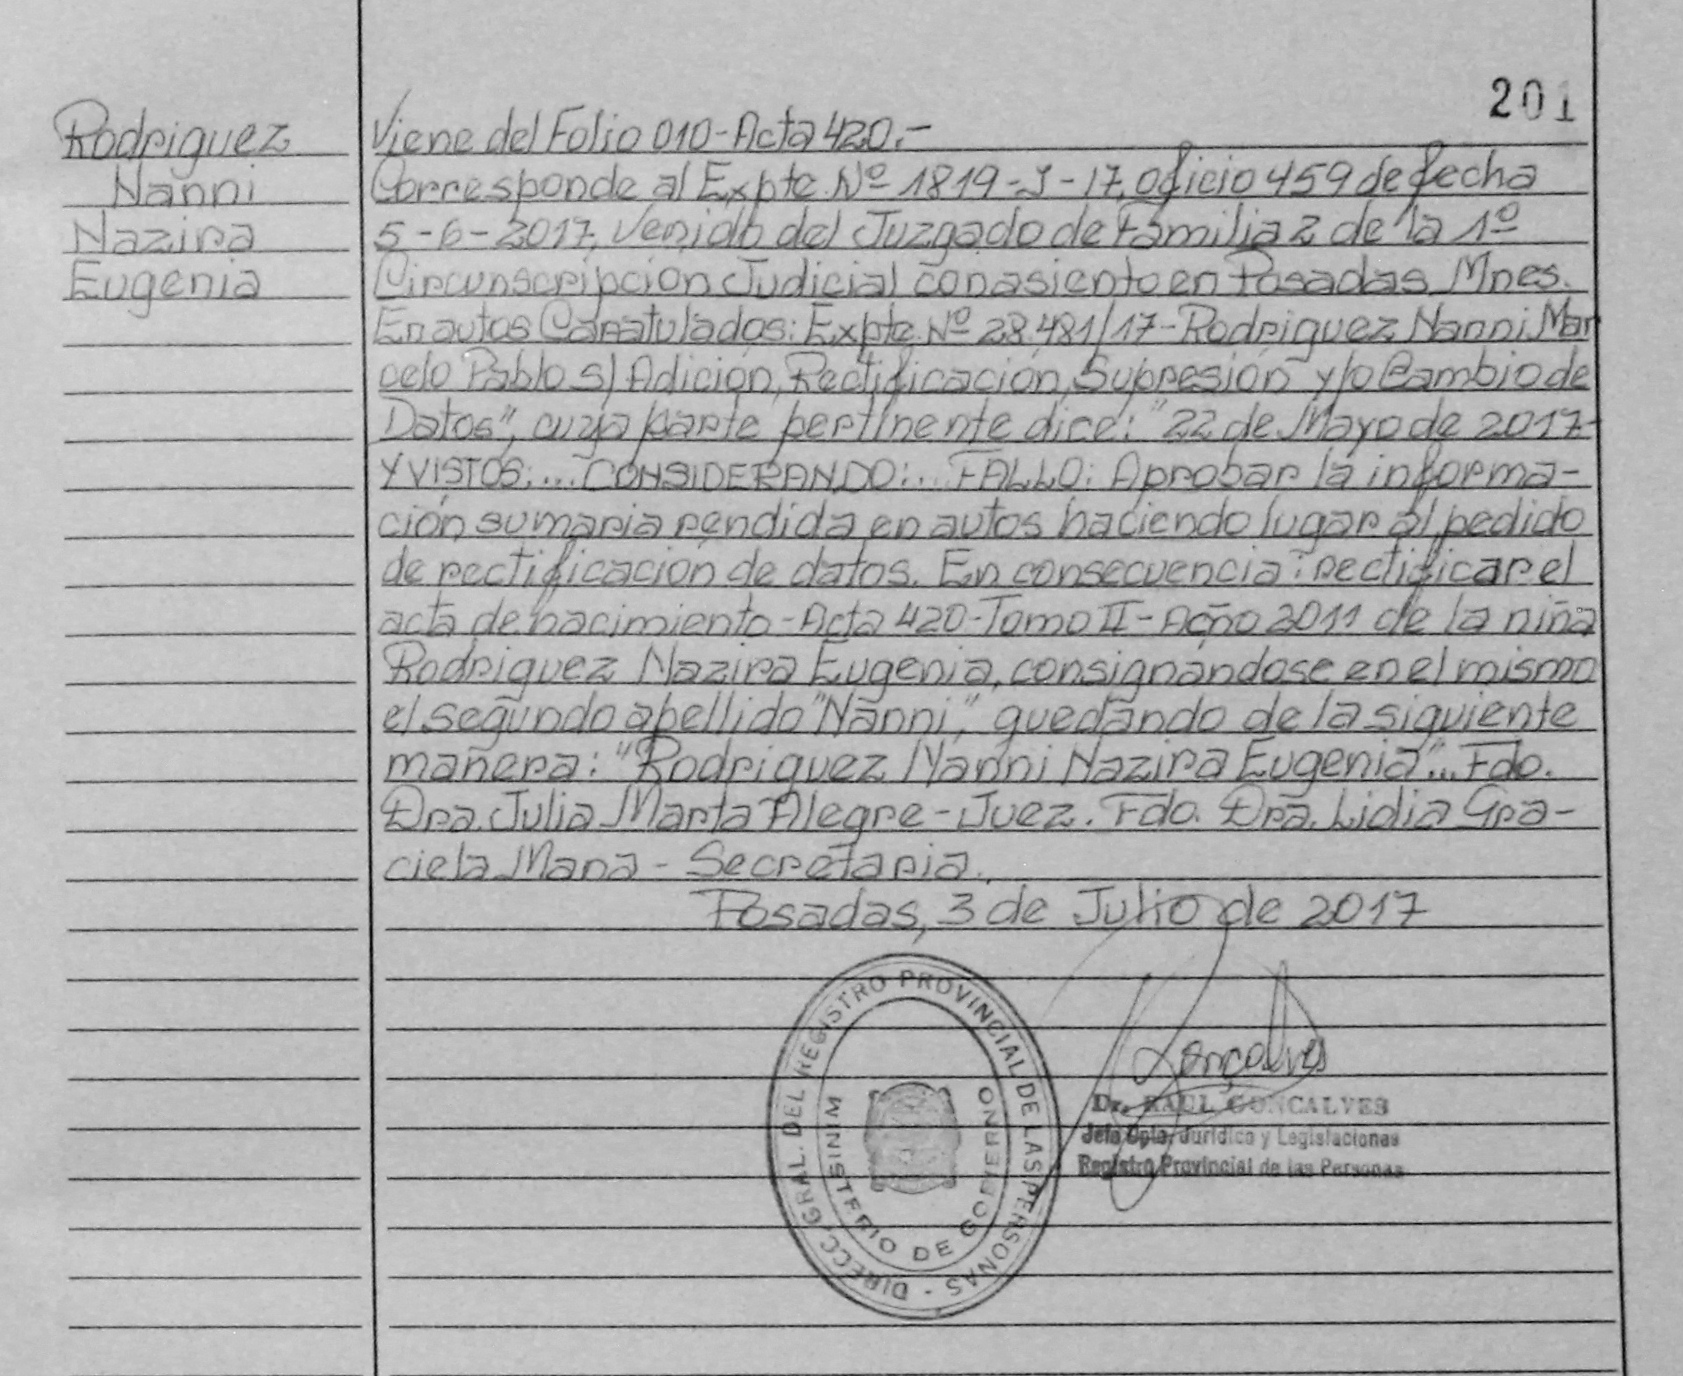 201
Rodriguez
Nanni
Nazira
Eugenia
Viene del Folio 010-Acta 420.-
Corresponde al Expte. Nº 1819-J-17, oficio 459 de fecha
5-6-2017, venido del Juzgado de Familia 2 de la 1º
Circunscripción Judicial con asiento en Posadas, Mnes.
En autos Caratulados: Expte. Nº 28.481/17-Rodriguez Nanni Mar
celo Pablo s/ Adición, Rectificación, Supresión y/o Cambio de
Datos", cuya parte pertinente dice: "22 de Mayo de 2017-
Y VISTOS:... CONSIDERANDO:... FALLO: Aprobar la informa-
ción sumaria rendida en autos haciendo lugar al pedido
de rectificación de datos. En consecuencia: rectificar el
acta de nacimiento-Acta 420-Tomo II-Año 2011 de la niña
Rodriguez Nazira Eugenia, consignándose en el mismo
el segundo apellido "Nanni", quedando de la siguiente
manera: "Rodriguez Nanni Nazira Eugenia"... Fdo.
Dra. Julia Marta Alegre-Juez. Fdo. Dra. Lidia Gra-
ciela Mana - Secretaria.
Posadas, 3 de Julio de 2017
DIRECC. GRAL. DEL REGISTRO PROVINCIAL DE LAS PERSONAS -
MINISTERIO DE GOBIERNO
Gonçalves
Dr. RAUL GONCALVES
Jefe Dpto. Jurídico y Legislaciones
Registro Provincial de las Personas